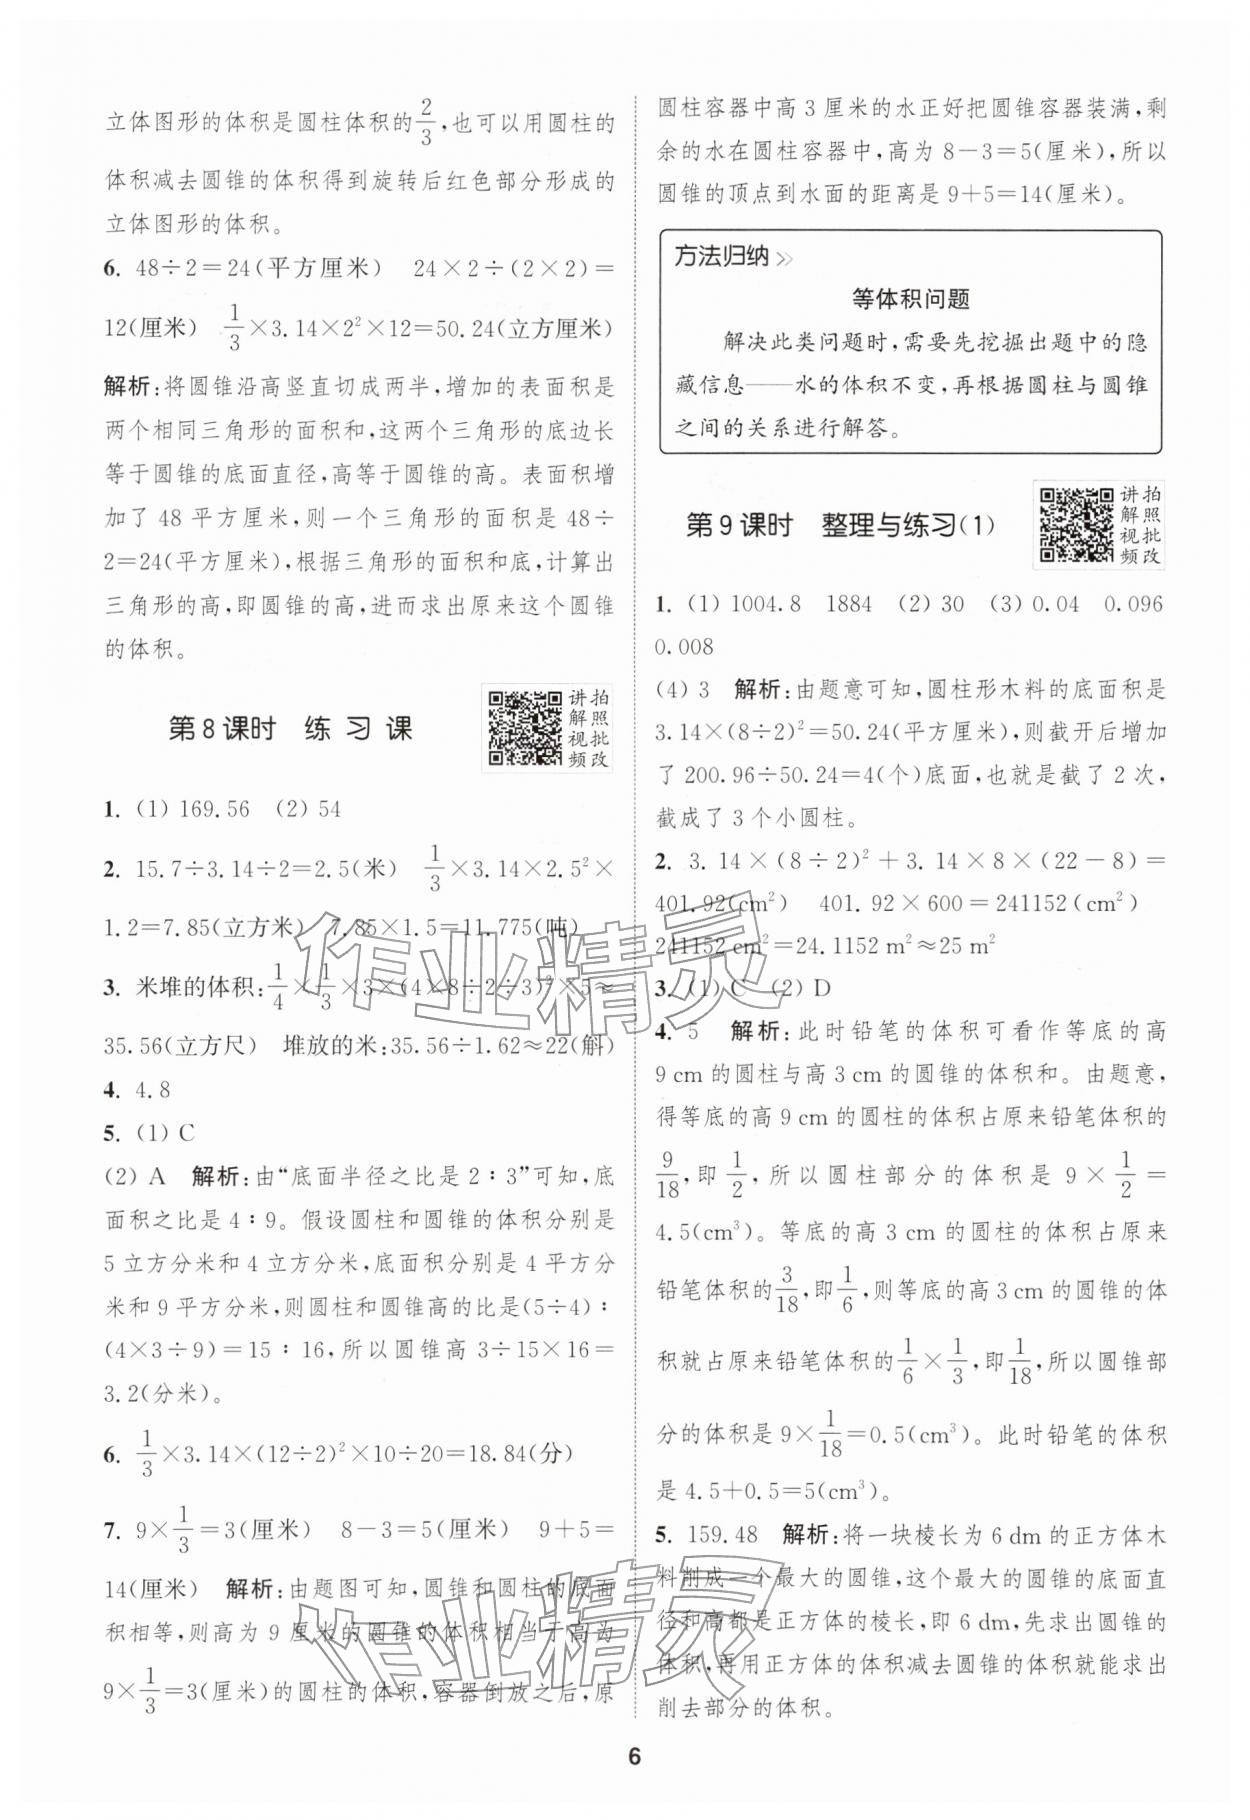 立体图形的体积是圆柱体积的2/3,也可以用圆柱的
体积减去圆锥的体积得到旋转后红色部分形成的
立体图形的体积。
6. 48÷2=24(平方厘米) 24×2÷(2×2)=
12(厘米) 1/3×3.14×2²×12=50.24(立方厘米)
解析:将圆锥沿高竖直切成两半,增加的表面积是
两个相同三角形的面积和,这两个三角形的底边长
等于圆锥的底面直径,高等于圆锥的高。表面积增
加了 48 平方厘米,则一个三角形的面积是 48÷
2=24(平方厘米),根据三角形的面积和底,计算出
三角形的高,即圆锥的高,进而求出原来这个圆锥
的体积。
第 8 课时 练 习 课
讲拍
解照
视批
频改
1. (1) 169.56 (2) 54
2. 15.7÷3.14÷2=2.5(米) 1/3×3.14×2.5²×
1.2=7.85(立方米) 7.85×1.5=11.775(吨)
3. 米堆的体积:1/4×1/3×3×(4×8÷2÷3)²×5≈
35.56(立方尺) 堆放的米:35.56÷1.62≈22(斛)
4. 4.8
5. (1) C
(2) A 解析:由“底面半径之比是 2∶3”可知,底
面积之比是 4∶9。假设圆柱和圆锥的体积分别是
5 立方分米和 4 立方分米,底面积分别是 4 平方分
米和 9 平方分米,则圆柱和圆锥高的比是(5÷4)∶
(4×3÷9)=15∶16,所以圆锥高 3÷15×16=
3.2(分米)。
6. 1/3×3.14×(12÷2)²×10÷20=18.84(分)
7. 9×1/3=3(厘米) 8-3=5(厘米) 9+5=
14(厘米) 解析:由题图可知,圆锥和圆柱的底面
积相等,则高为 9 厘米的圆锥的体积相当于高为
9×1/3=3(厘米)的圆柱的体积,容器倒放之后,原
圆柱容器中高 3 厘米的水正好把圆锥容器装满,剩
余的水在圆柱容器中,高为 8-3=5(厘米),所以
圆锥的顶点到水面的距离是 9+5=14(厘米)。
方法归纳
等体积问题
解决此类问题时,需要先挖掘出题中的隐
藏信息——水的体积不变,再根据圆柱与圆锥
之间的关系进行解答。
第 9 课时 整理与练习(1)
讲拍
解照
视批
频改
1. (1) 1004.8 1884 (2) 30 (3) 0.04 0.096
0.008
(4) 3 解析:由题意可知,圆柱形木料的底面积是
3.14×(8÷2)²=50.24(平方厘米),则截开后增加
了 200.96÷50.24=4(个)底面,也就是截了 2 次,
截成了 3 个小圆柱。
2. 3.14×(8÷2)²+3.14×8×(22-8)=
401.92(cm²) 401.92×600=241152(cm²)
241152 cm²=24.1152 m²≈25 m²
3. (1) C (2) D
4. 5 解析:此时铅笔的体积可看作等底的高
9 cm 的圆柱与高 3 cm 的圆锥的体积和。由题意,
得等底的高 9 cm 的圆柱的体积占原来铅笔体积的
9/18,即 1/2,所以圆柱部分的体积是 9×1/2=
4.5(cm³)。等底的高 3 cm 的圆柱的体积占原来
铅笔体积的3/18,即1/6,则等底的高 3 cm 的圆锥的体
积就占原来铅笔体积的1/6×1/3,即1/18,所以圆锥部
分的体积是 9×1/18=0.5(cm³)。此时铅笔的体积
是 4.5+0.5=5(cm³)。
5. 159.48 解析:将一块棱长为 6 dm 的正方体木
料削成一个最大的圆锥,这个最大的圆锥的底面直
径和高都是正方体的棱长,即 6 dm,先求出圆锥的
体积,再用正方体的体积减去圆锥的体积就能求出
削去部分的体积。
6
作业精灵
作业精灵